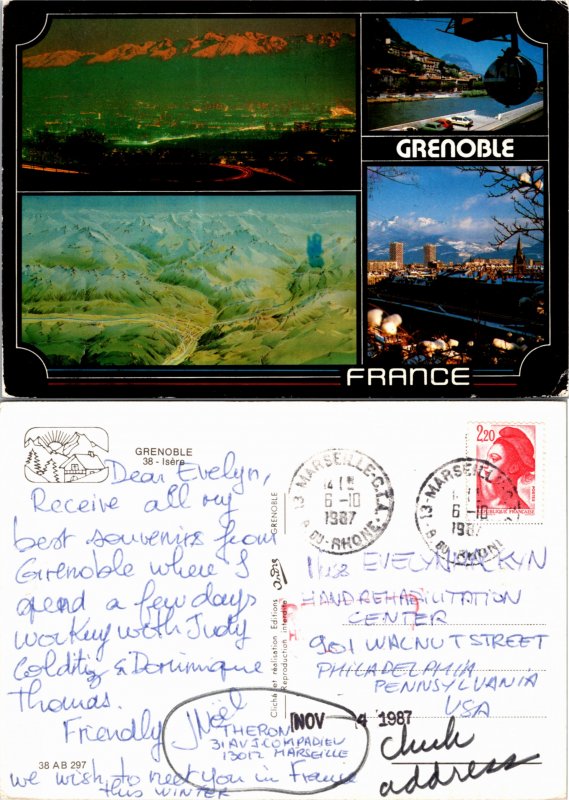 GRENOBLE
FRANCE
GRENOBLE
38 - Isère
Dear Evelyn,
Receive all my
best souvenirs from
Grenoble where I
spend a few days
working with Judy
Colditz & Dominique
Thomas.
Friendly JNoël
THERON
31 AV J COMPADIEU
13012 MARSEILLE
we wish to meet you in France
this WINTER
38 AB 297
GRENOBLE
Cliché et réalisation Editions
Reproduction interdite
13-MARSEILLE-C.T.A.
6-10
1987
B. DU-RHONE
2,20
POSTES
REPUBLIQUE FRANÇAISE
13-MARSEILLE
6-10
1987
B. DU-RHONE
Miss EVELYN
HAND REHABILITATION
CENTER
901 WALNUT STREET
PHILADELPHIA
PENNSYLVANIA
USA
NOV 4 1987
Check
address